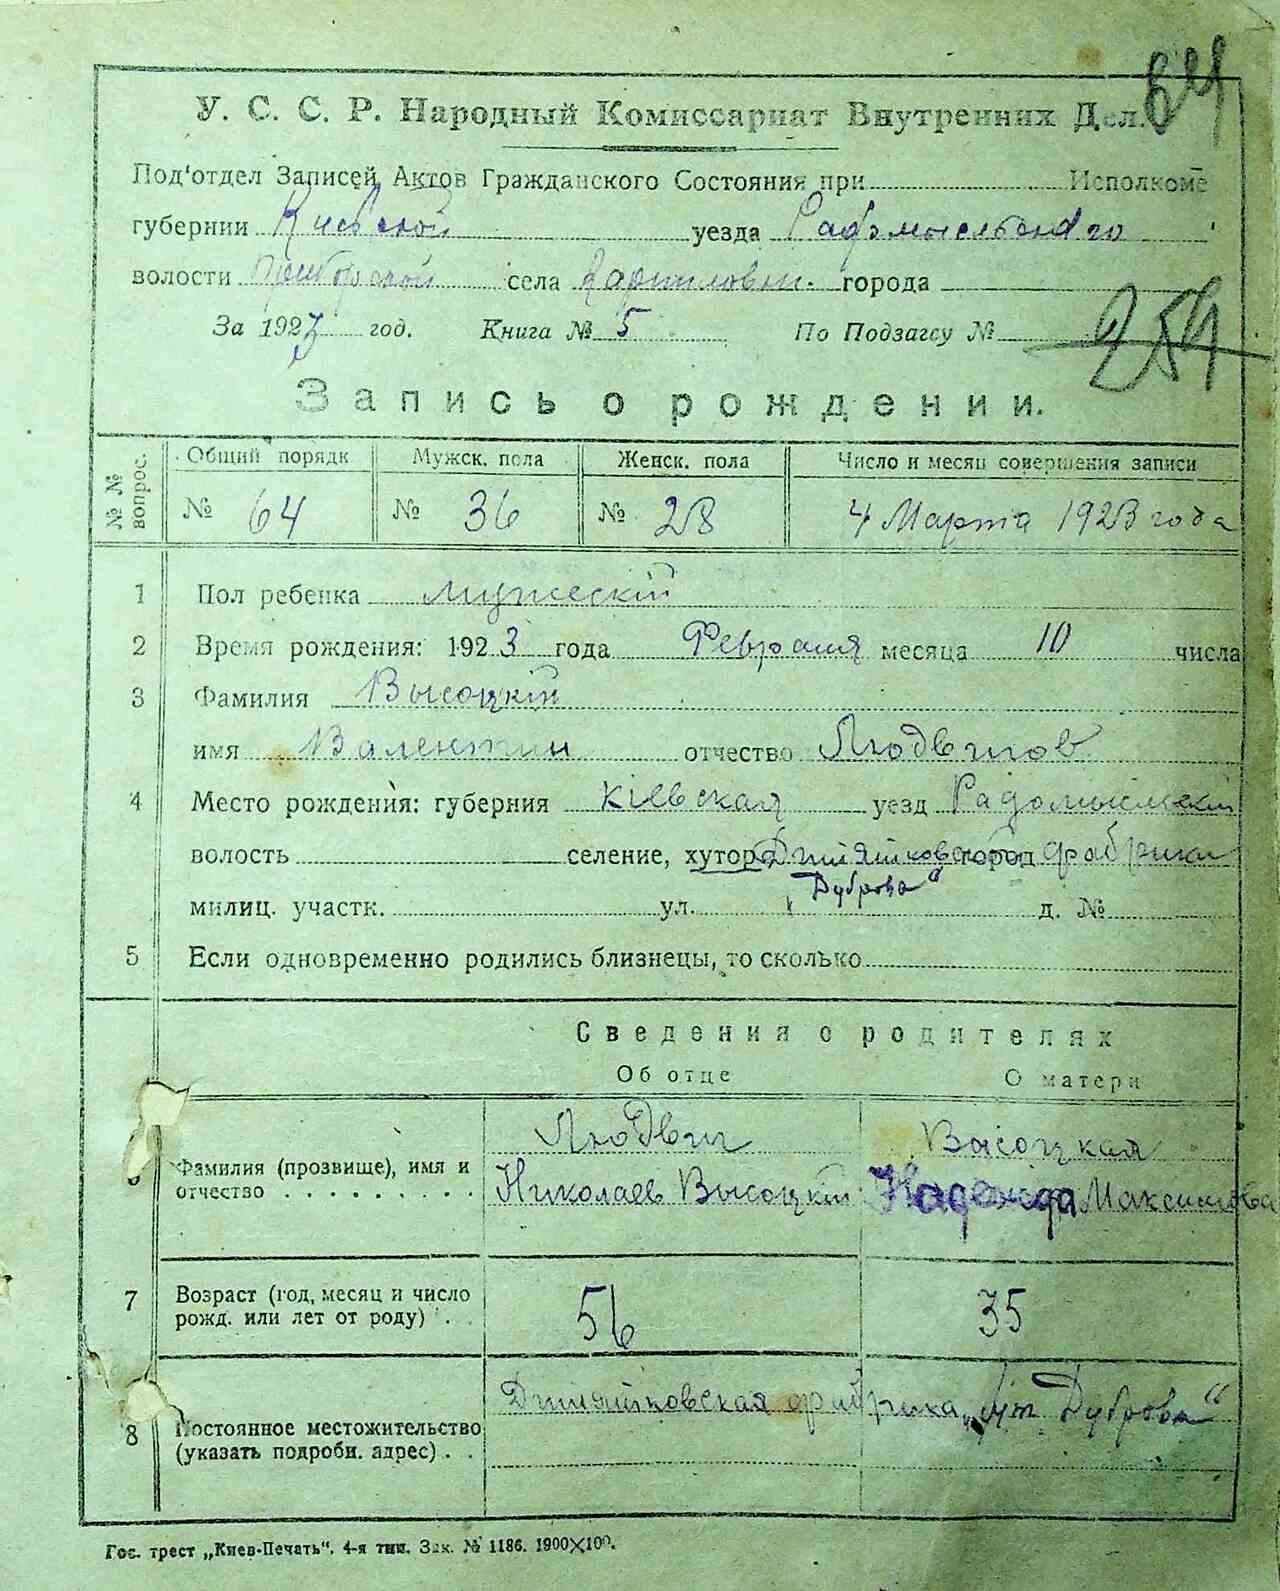 64
У. С. С. Р. Народный Комиссариат Внутренних Дел.
Под'отдел Записей Актов Гражданского Состояния при Исполкоме
губернии Киевской уезда Радомысльского
волости села города
За 1923 год. Книга № 5 По Подзагсу № 259
Запись о рождении.
№ № вопрос. Общий порядк Мужск. пола Женск. пола Число и месяц совершения записи
№ 64 № 36 № 28 4 Марта 1923 года
1 Пол ребенка мужескій
2 Время рождения: 1923 года Февраля месяца 10 числа
3 Фамилия Высоцкій
имя Валентин отчество Людвигов
4 Место рождения: губерния Кіевская уезд Радомысльскій
волость селение, хутор город фабрика
„Дуброва“
милиц. участк. ул. д. №
5 Если одновременно родились близнецы, то сколько
Сведения о родителях
Об отце О матери
Людвиг Высоцкая
6 Фамилия (прозвище), имя и отчество . . . . . . . . . Николаев Высоцкій Надежда Максимова
7 Возраст (год, месяц и число рожд. или лет от роду) . . 56 35
8 Постоянное местожительство (указать подробн. адрес) . . фабрика Дуброва“
Гос. трест „Киев-Печать“. 4-я тип. Зак. № 1186. 1900×100.